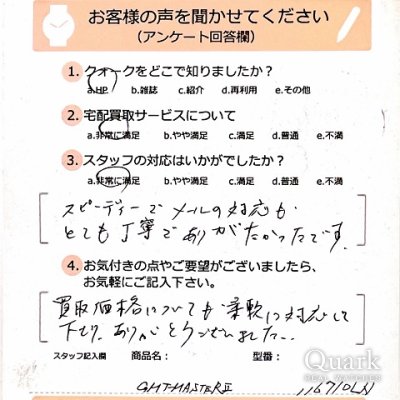 お客様の声を聞かせてください
(アンケート回答欄)
1. クォークをどこで知りましたか?
a.HP b.雑誌 c.紹介 d.再利用 e.その他
2. 宅配買取サービスについて
a.非常に満足 b.やや満足 c.満足 d.普通 e.不満
3. スタッフの対応はいかがでしたか?
a.非常に満足 b.やや満足 c.満足 d.普通 e.不満
スピーディーで メールの対応も
とても丁寧でありがたかったです.
4. お気付きの点やご要望がございましたら、
お気軽にご記入下さい。
買取価格についても柔軟に対応して
下さり、ありがとうございました.
スタッフ記入欄 商品名: 型番:
GMTMASTERⅡ 116710LN
Quark
REAL WATCHES